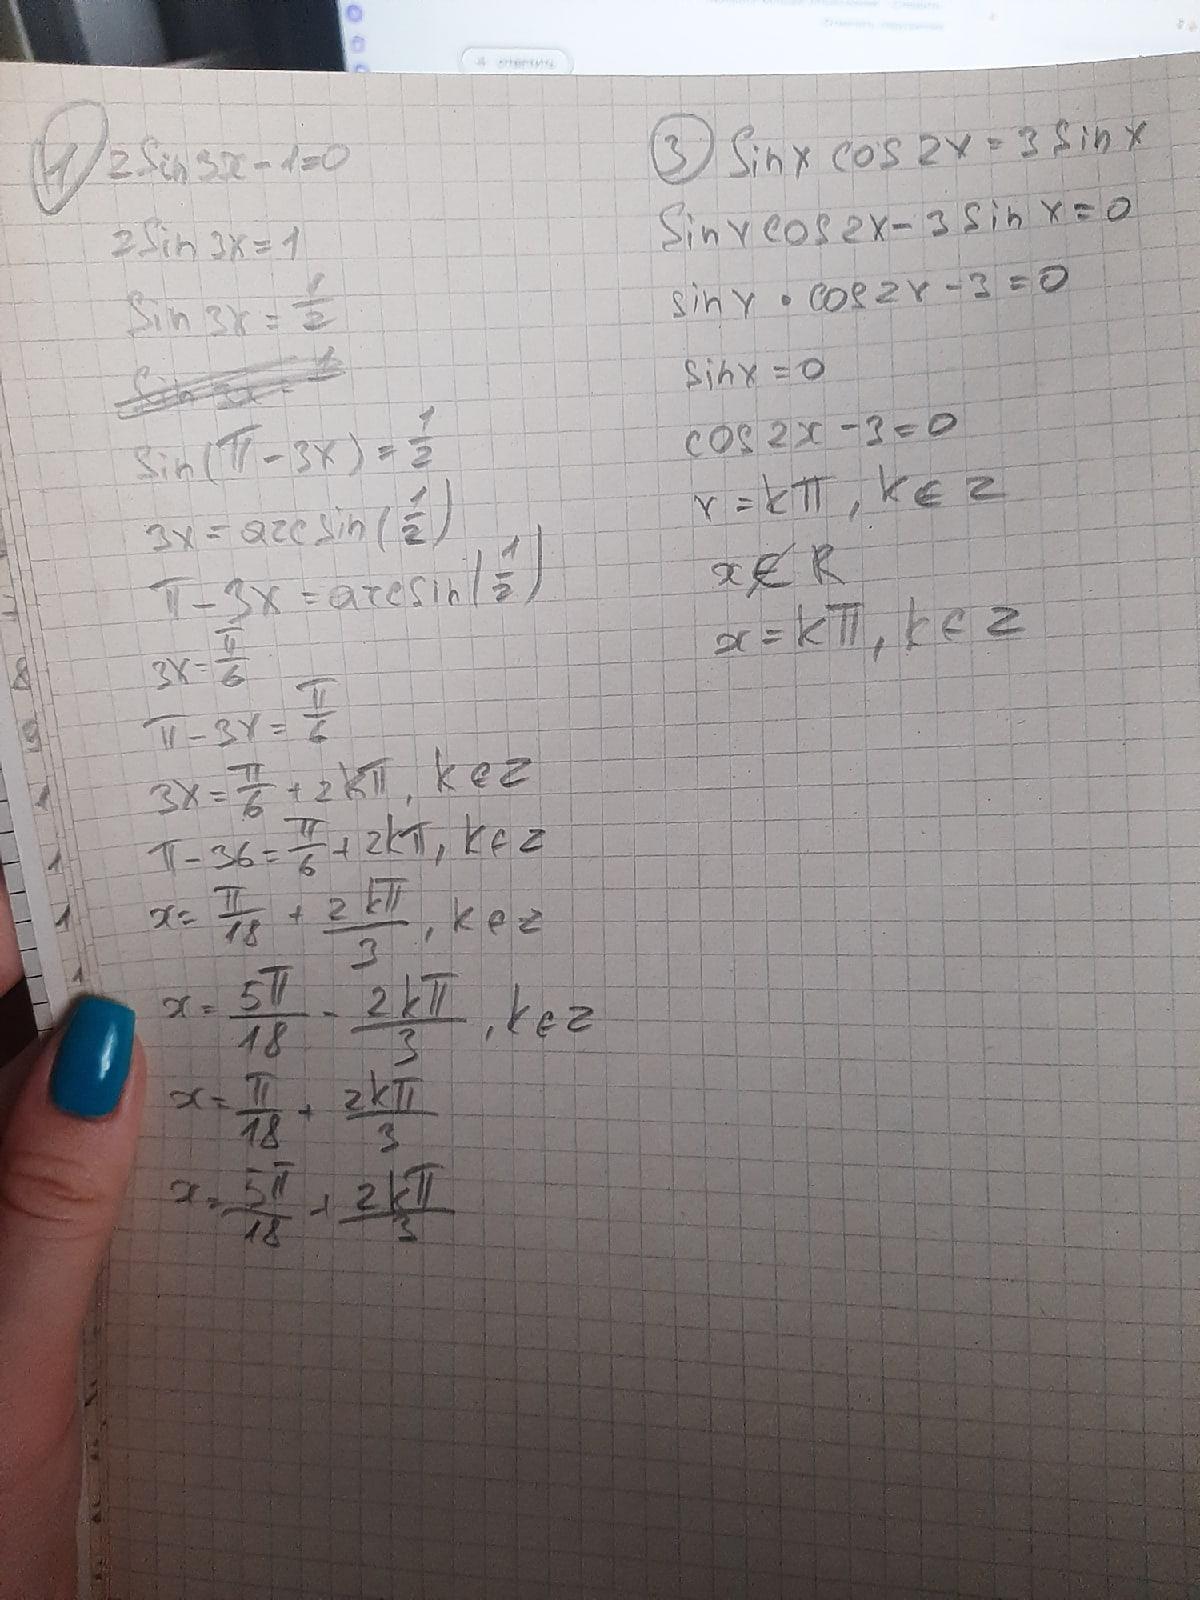 ответить
1) 2sin3x-1=0
2sin3x=1
sin3x=1/2
sin(π-3x)=1/2
3x=arcsin(1/2)
π-3x=arcsin(1/2)
3x=π/6
π-3x=π/6
3x=π/6+2kπ, k∈z
π-36=π/6+2kπ, k∈z
x=π/18+2kπ/3, k∈z
x=5π/18-2kπ/3, k∈z
x=π/18+2kπ/3
x=5π/18+2kπ/3
3) sinx cos2x=3sinx
sinxcos2x-3sinx=0
sinx•cos2x-3=0
sinx=0
cos2x-3=0
x=kπ, k∈z
x∉R
x=kπ, k∈z
8
9
1
1
1
1